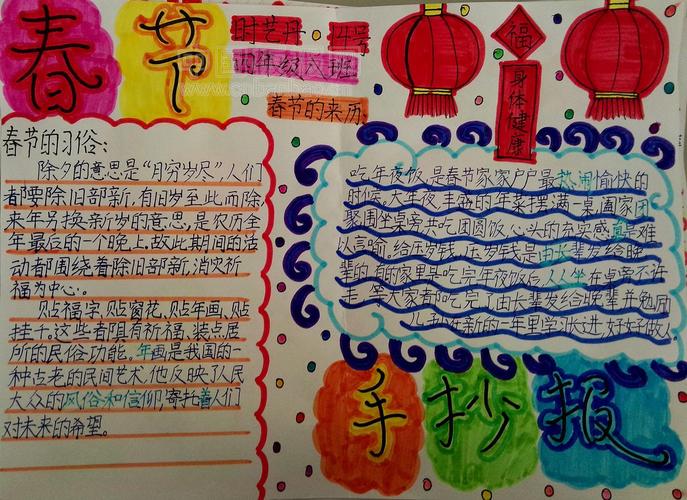 春节
时艺丹 4号
四年级六班
春节的来历:
福
身体健康
春节的习俗:
除夕的意思是“月穷岁尽”,人们
都要除旧部新,有旧岁至此而除
来年另换新岁的意思,是农历全
年最后的一个晚上,故此期间的活
动都围绕着除旧部新,消灾祈
福为中心。
贴福字,贴窗花,贴年画,贴
挂千。这些者阻有祈福、装点居
所的民俗功能。年画是我国的一
种古老的民间艺术,他反映了人民
大众的风俗和信仰,寄托着人们
对未来的希望。
吃年夜饭,是春节家家户户最热闹愉快的
时候。大年夜丰弥的年菜摆满一桌,阖家团
聚,围坐桌旁共吃团圆饭,心头的充实感真是难
以言喻。给压岁钱,压岁钱是由长辈发给晚
辈的,有的家里是吃完年夜饭后,人人坐在桌旁不许
走,等大家都吃完了由长辈发给晚辈,并勉励
儿孙在新的一年里学习长进,好好做人。
手抄报